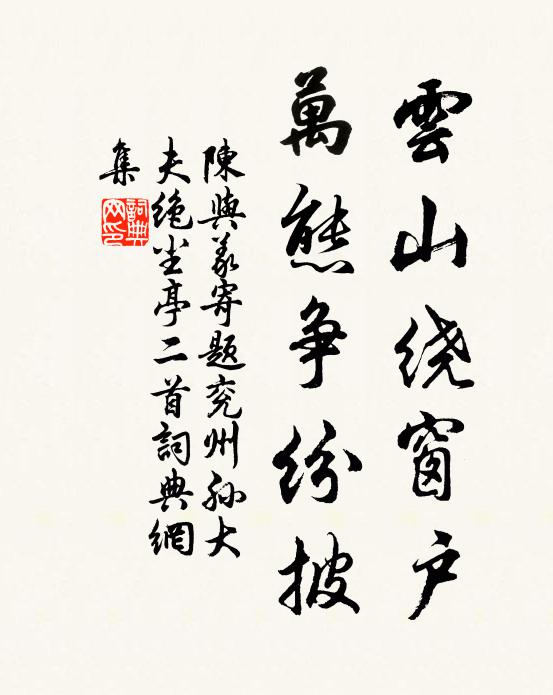 雲山绕窗户
萬態争紛披
陳與義寄題兖州孫大
夫絶塵亭二首詞典網
集
詞典
网印